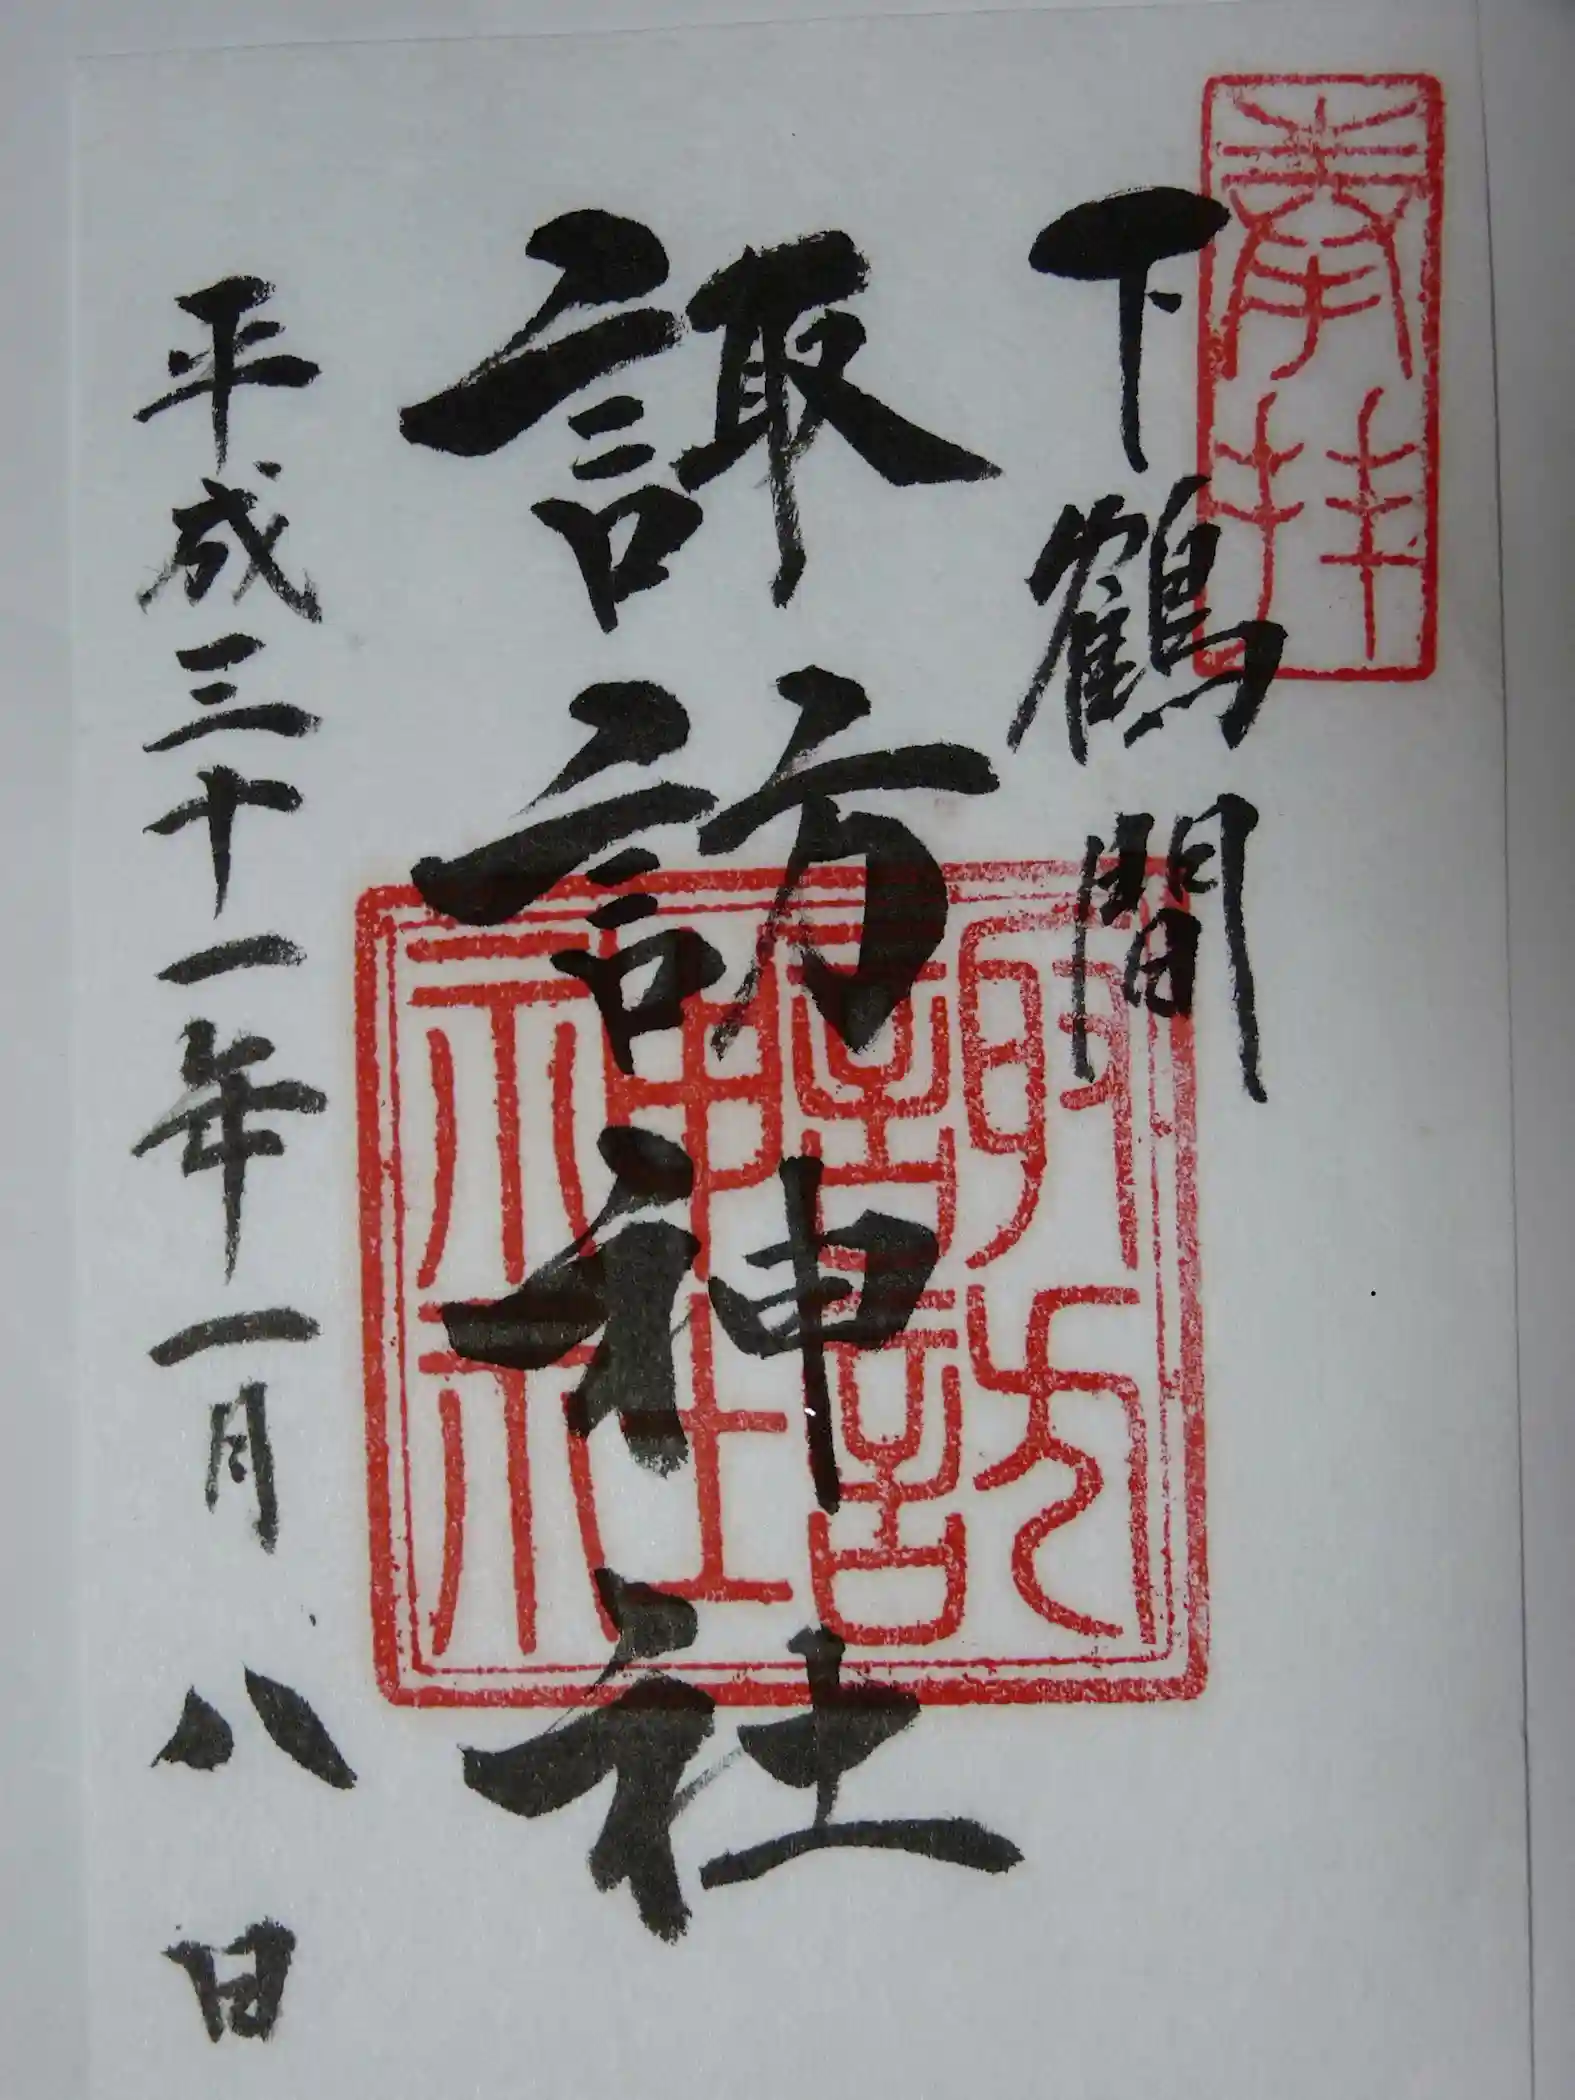 奉拝
下鶴間
諏訪神社
諏訪神社
平成三十一年一月八日